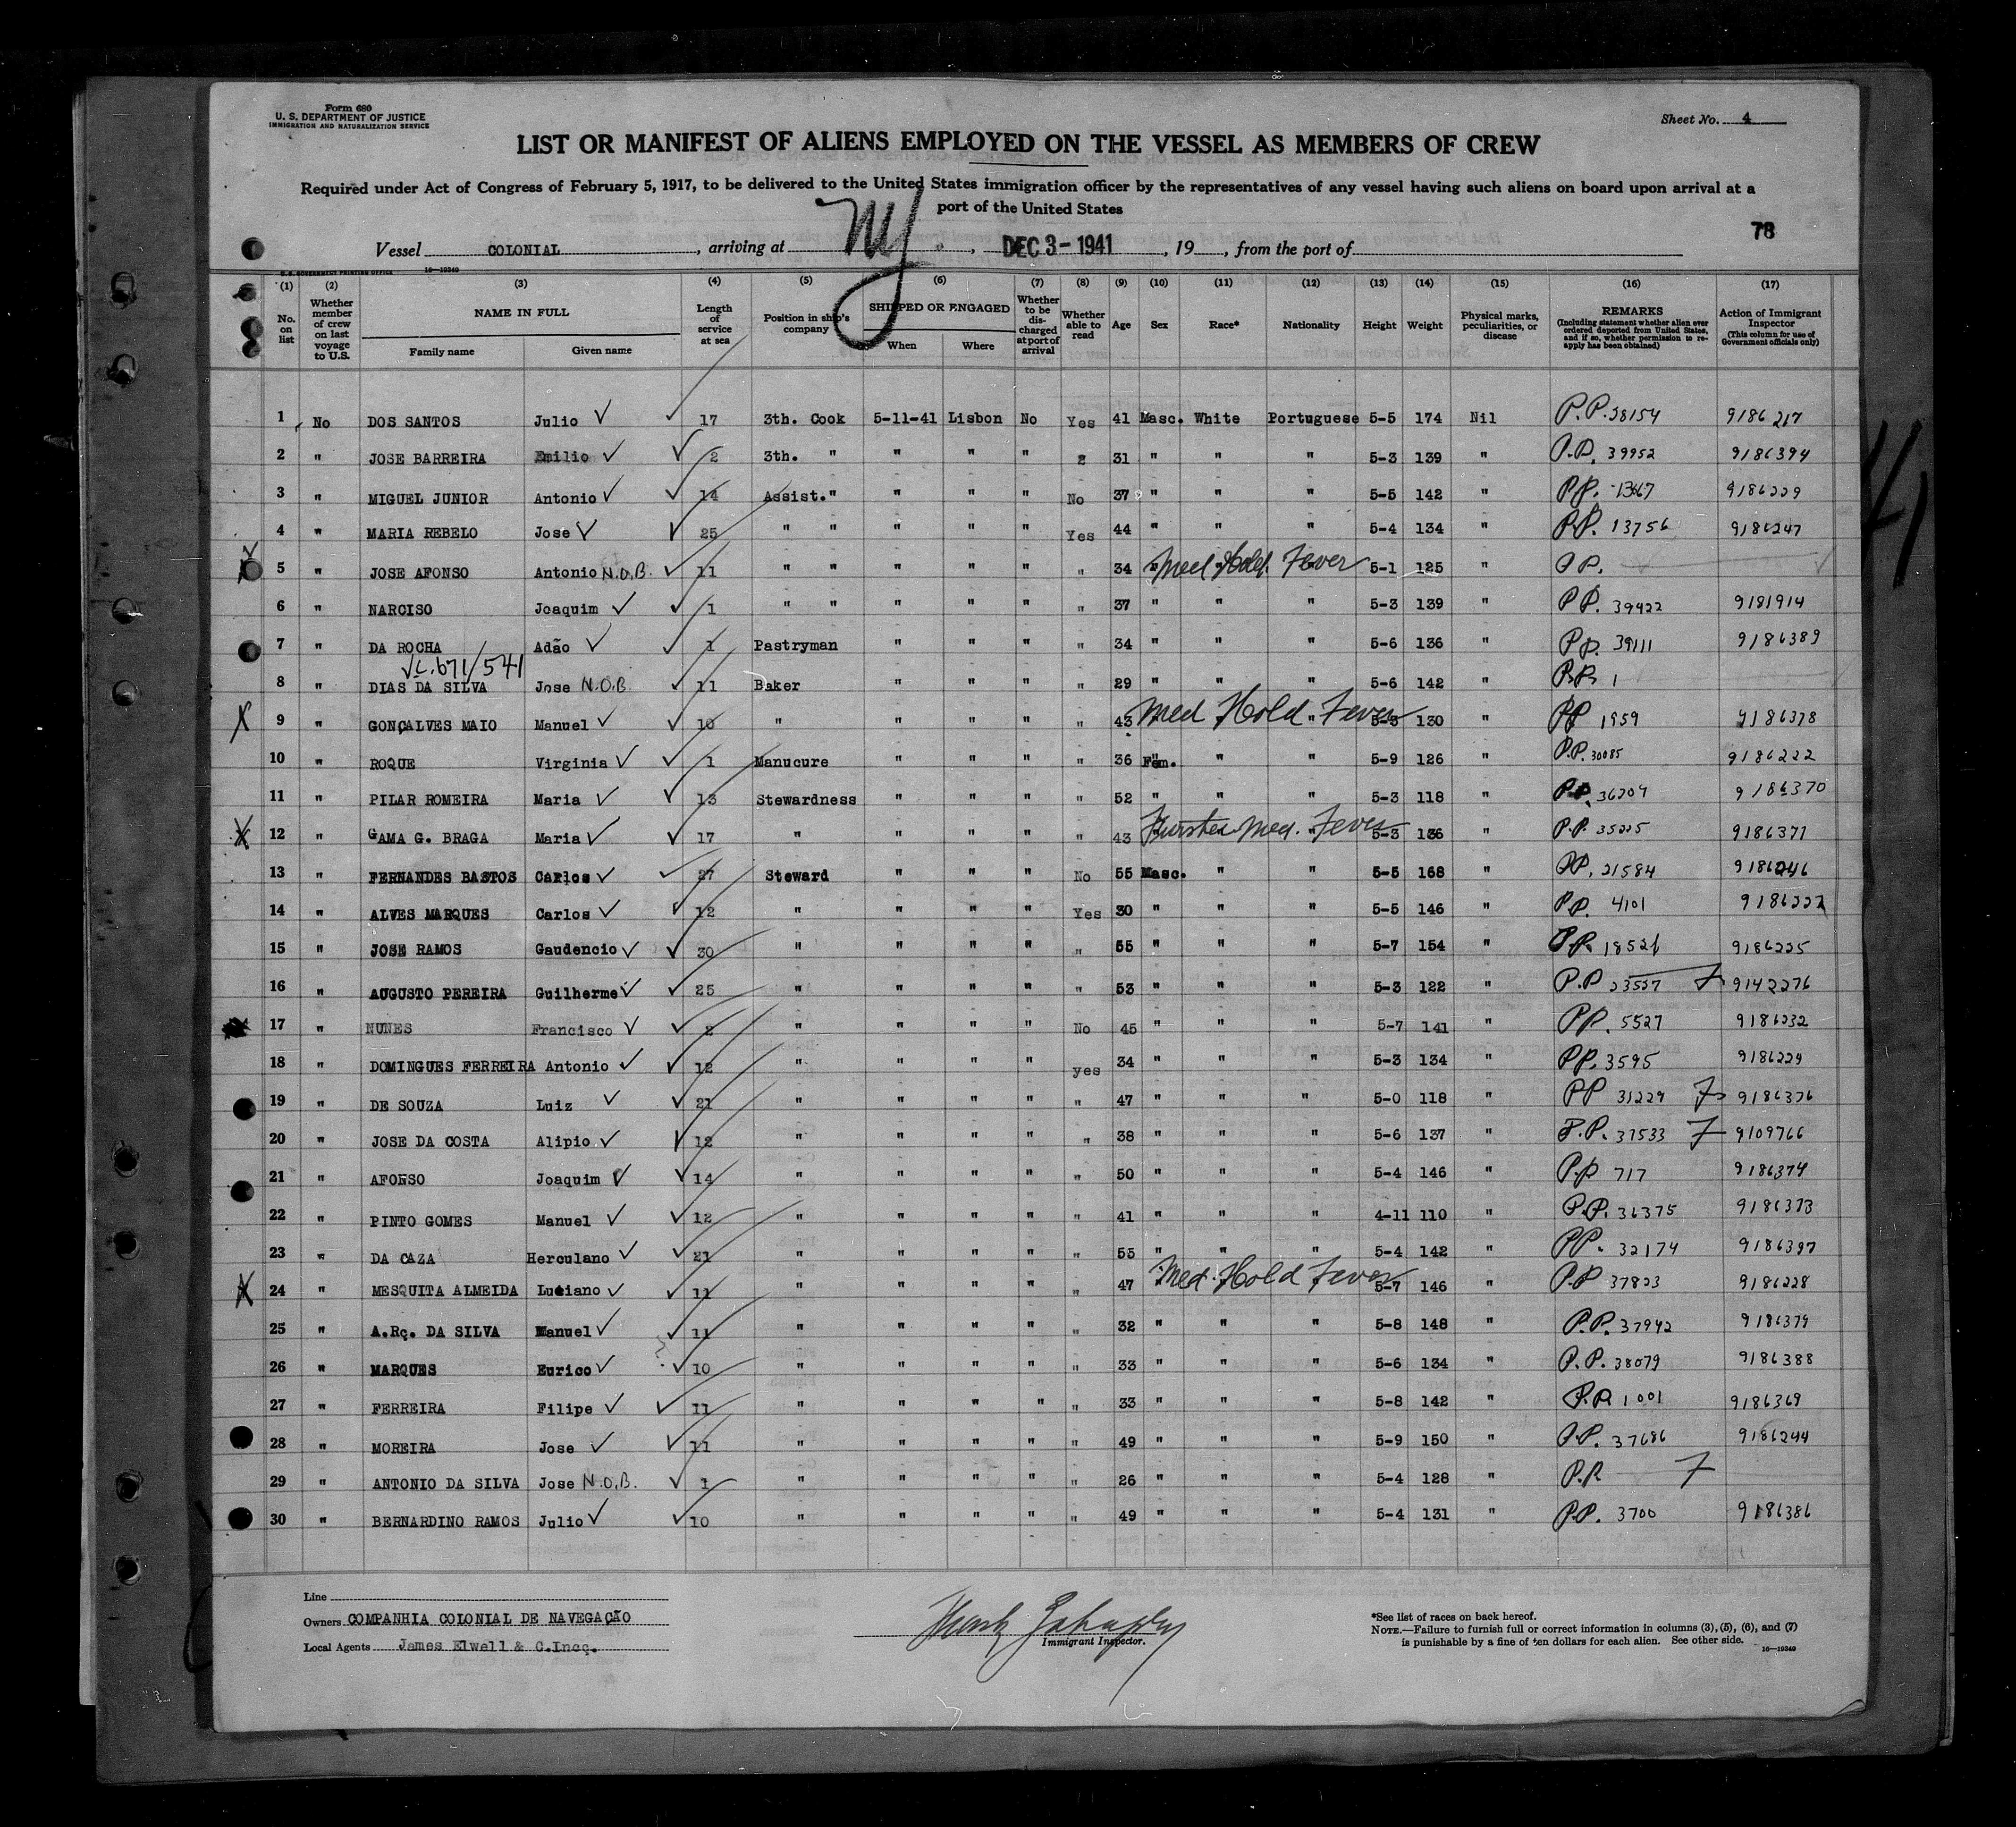 Form 680
U. S. DEPARTMENT OF JUSTICE
IMMIGRATION AND NATURALIZATION SERVICE
Sheet No. 4
LIST OR MANIFEST OF ALIENS EMPLOYED ON THE VESSEL AS MEMBERS OF CREW
Required under Act of Congress of February 5, 1917, to be delivered to the United States immigration officer by the representatives of any vessel having such aliens on board upon arrival at a
port of the United States
78
Vessel COLONIAL, arriving at NY, DEC 3-1941, 19, from the port of
U. S. GOVERNMENT PRINTING OFFICE 16—19349
(1) (2) (3) (4) (5) (6) (7) (8) (9) (10) (11) (12) (13) (14) (15) (16) (17)
No. on list
Whether member of crew on last voyage to U.S.
NAME IN FULL
Family name Given name
Length of service at sea
Position in ship's company
SHIPPED OR ENGAGED
When Where
Whether to be discharged at port of arrival
Whether able to read
Age Sex Race* Nationality Height Weight
Physical marks, peculiarities, or disease
REMARKS
(Including statement whether alien ever ordered deported from United States, and if so, whether permission to reapply has been obtained)
Action of Immigrant Inspector
(This column for use of Government officials only)
1 No DOS SANTOS Julio 17 3th. Cook 5-11-41 Lisbon No Yes 41 Masc. White Portuguese 5-5 174 Nil P.P. 38154 9186217
2 " JOSE BARREIRA Emilio 2 3th. " " " " 31 " " " 5-3 139 " P.P. 39952 9186394
3 " MIGUEL JUNIOR Antonio 14 Assist." " " " No 37 " " " 5-5 142 " P.P. 1367 9186229
4 " MARIA REBELO Jose 25 " " " " " Yes 44 " " " 5-4 134 " P.P. 13756 9186247
5 " JOSE AFONSO Antonio N.O.B. 11 " " " " " " 34 Med Hold. Fever 5-1 125 " P.P.
6 " NARCISO Joaquim 1 " " " " " " 37 " " " 5-3 139 " P.P. 39422 9181914
7 " DA ROCHA Adão 1 Pastryman " " " " 34 " " " 5-6 136 " P.P. 39111 9186389
L.671/541
8 " DIAS DA SILVA Jose N.O.B. 11 Baker " " " " 29 " " " 5-6 142 " P.P. 1
9 " GONÇALVES MAIO Manuel 10 " " " " " 43 Med Hold Fever 5-3 130 " PP 1959 9186378
10 " ROQUE Virginia 1 Manucure " " " " 36 Fem. " " 5-9 126 " P.P. 30085 9186222
11 " PILAR ROMEIRA Maria 13 Stewardness " " " " 52 " " " 5-3 118 " P.P. 36209 9186370
12 " GAMA G. BRAGA Maria 17 " " " " " 43 Med. Fever 5-3 136 " P.P. 35225 9186371
13 " FERNANDES BASTOS Carlos 27 Steward " " " No 55 Masc. " " 5-5 168 " P.P. 21584 9186246
14 " ALVES MARQUES Carlos 12 " " " " Yes 30 " " " 5-5 146 " P.P. 4101 9186227
15 " JOSE RAMOS Gaudencio 30 " " " " " 55 " " " 5-7 154 " P.P. 18521 9186225
16 " AUGUSTO PEREIRA Guilherme 25 " " " " " 53 " " " 5-3 122 " P.P 23557 7 9142276
17 " NUNES Francisco 2 " " " " No 45 " " " 5-7 141 " PP. 5527 9186232
18 " DOMINGUES FERREIRA Antonio 12 " " " " yes 34 " " " 5-3 134 " PP. 3595 9186229
19 " DE SOUZA Luiz 21 " " " " " 47 " " " 5-0 118 " PP 31229 7 9186376
20 " JOSE DA COSTA Alipio 12 " " " " " 38 " " " 5-6 137 " P.P. 37533 7 9109766
21 " AFONSO Joaquim 14 " " " " " 50 " " " 5-4 146 " P.P 717 9186374
22 " PINTO GOMES Manuel 12 " " " " " 41 " " " 4-11 110 " P.P. 36375 9186373
23 " DA CAZA Herculano 21 " " " " " 55 " " " 5-4 142 " PP. 32174 9186397
24 " MESQUITA ALMEIDA Luciano 11 " " " " " 47 Med. Hold Fever 5-7 146 " P.P 37823 9186228
25 " A.Rç. DA SILVA Manuel 11 " " " " " 32 " " " 5-8 148 " P.P. 37942 9186379
26 " MARQUES Eurico 10 " " " " " 33 " " " 5-6 134 " P.P. 38079 9186388
27 " FERREIRA Filipe 11 " " " " " 33 " " " 5-8 142 " P.P. 1001 9186369
28 " MOREIRA Jose 11 " " " " " 49 " " " 5-9 150 " P.P. 37686 9186244
29 " ANTONIO DA SILVA Jose N.O.B. 1 " " " " " 26 " " " 5-4 128 " P.P. 7
30 " BERNARDINO RAMOS Julio 10 " " " " " 49 " " " 5-4 131 " P.P. 3700 9186386
Line
Owners COMPANHIA COLONIAL DE NAVEGAÇÃO
Local Agents James Elwell & C.Incç.
Immigrant Inspector.
*See list of races on back hereof.
NOTE.—Failure to furnish full or correct information in columns (3), (5), (6), and (7)
is punishable by a fine of ten dollars for each alien. See other side.
16—19349